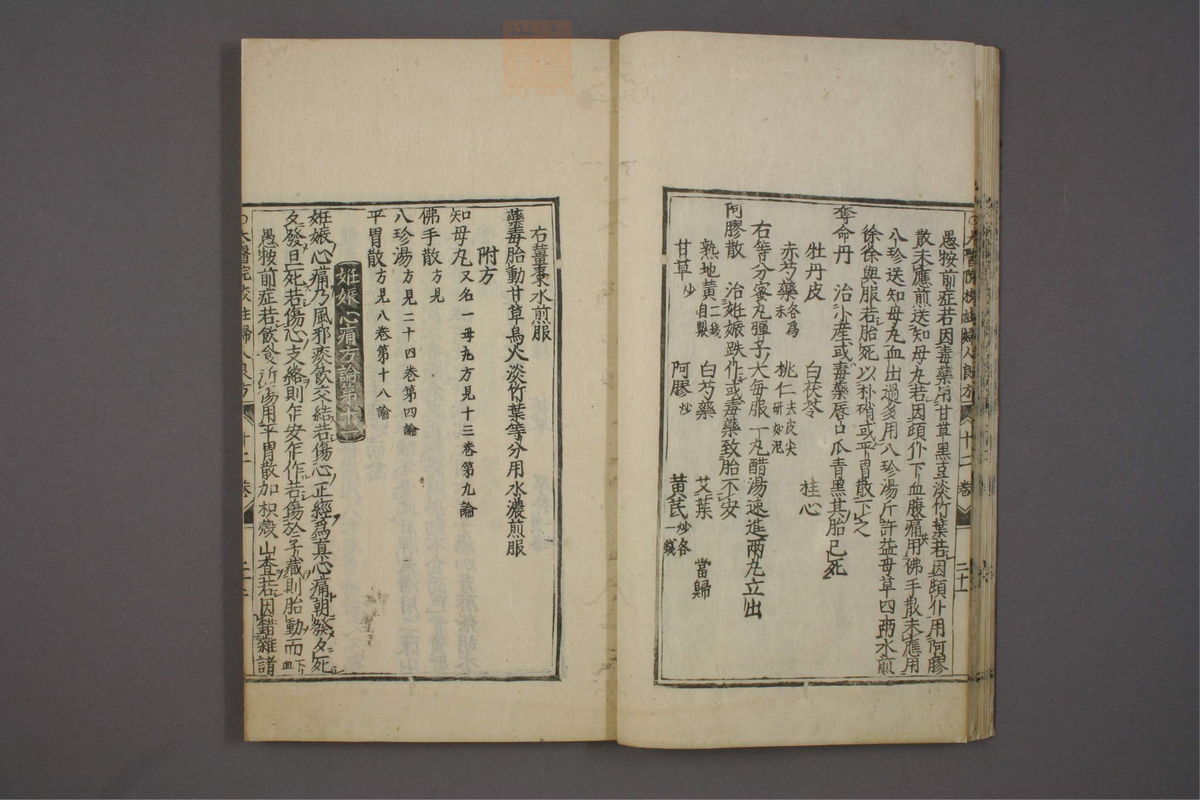 ○太醫院校註婦人良方 十二卷 二十一
愚按前症若因毒藥用甘草黑豆淡竹葉若因頓仆用阿膠
散未應煎送知母丸若因頓仆下血腹痛用佛手散未應用
八珍送知母丸血出過多用八珍湯斤許益母草四兩水煎
徐徐與服若胎死以朴硝或平胃散下之
奪命丹 治小產或毒藥唇口瓜青黑其胎已死
牡丹皮 白茯苓 桂心
赤芍藥各為末 桃仁去皮尖研如泥
右等分蜜丸彈子大每服一丸醋湯速進兩丸立出
阿膠散 治妊娠跌仆或毒藥致胎不安
熟地黃二錢自製 白芍藥 艾葉 當歸
甘草炒 阿膠炒 黃芪炒各一錢
右薑棗水煎服
藥毒胎動甘草烏犬淡竹葉等分用水濃煎服
附方
知母丸又名一母丸方見十三卷第九論
佛手散方見
八珍湯方見二十四卷第四論
平胃散方見八卷第十八論
妊娠心痛方論第十二
妊娠心痛乃風邪痰飲交結若傷心正經為真心痛朝發夕死
夕發旦死若傷心支絡則乍安乍作若傷於子藏則胎動而下血
愚按前症若飲食所傷用平胃散加枳殼山查若因錯雜諸
○太醫院校註婦人良方 十二卷